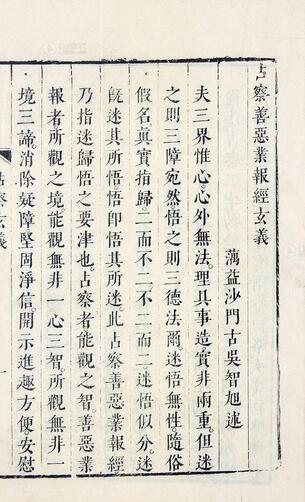 占察善惡業報經玄義
蕅益沙門古吳智旭述
夫三界惟心。心外無法。理具事造。實非兩重。但迷
之則三障宛然。悟之則三德法爾。迷悟無性。隨俗
假名。真實指歸。二而不二。不二而二。迷悟似分。迷
旣迷其所悟。悟卽悟其所迷。此占察善惡業報經
乃指迷歸悟之要津也。占察者。能觀之智。善惡業
報者。所觀之境。能觀無非一心三智。所觀無非一
境三諦。消除疑障。堅固淨信。開示進趣方便。安慰
占察玄義
一